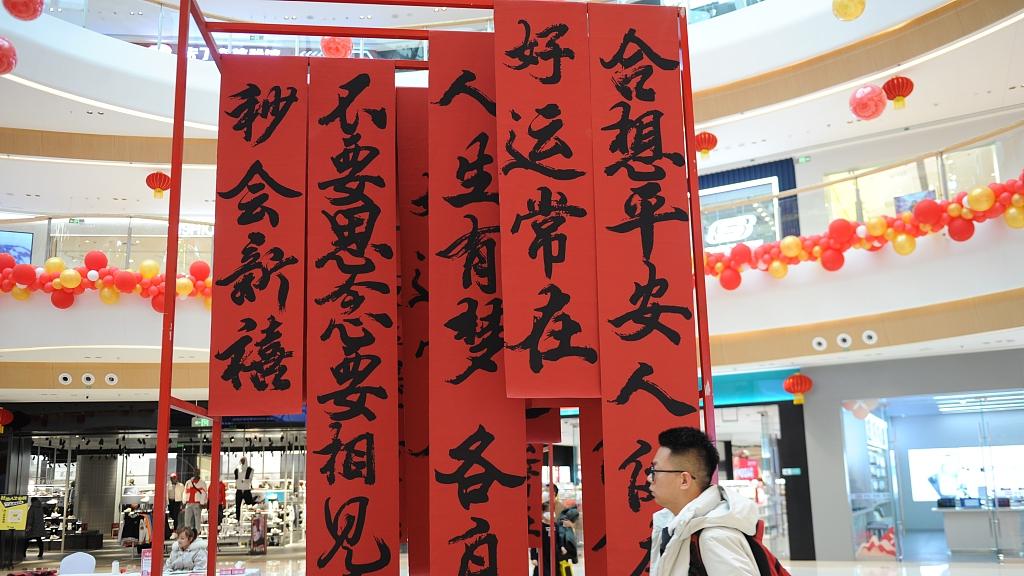 合想平安人
好运常在
人生有梦各自
不要思念要相见
秒会新禧